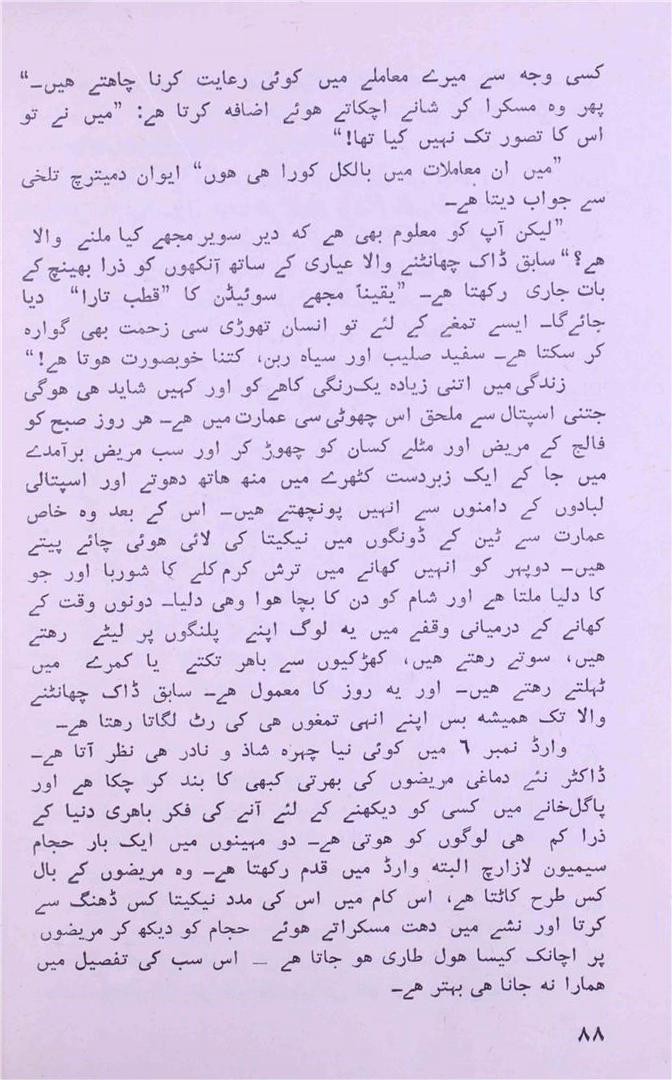 کسی وجہ سے میرے معاملے میں کوئی رعایت کرنا چاہتے ہیں۔“
پھر وہ مسکرا کر شانے اچکاتے ہوئے اضافہ کرتا ہے: ”میں نے تو
اس کا تصور تک نہیں کیا تھا!“
”میں ان معاملات میں بالکل کورا ہی ہوں“ ایوان دمیترچ تلخی
سے جواب دیتا ہے۔
”لیکن آپ کو معلوم بھی ہے کہ دیر سویر مجھے کیا ملنے والا
ہے؟“ سابق ڈاک چھانٹنے والا عیاری کے ساتھ آنکھوں کو ذرا بھینچ کے
بات جاری رکھتا ہے۔ ”یقیناً مجھے سوئیڈن کا ”قطب تارا“ دیا
جائےگا۔ ایسے تمغے کے لئے تو انسان تھوڑی سی زحمت بھی گوارہ
کر سکتا ہے۔ سفید صلیب اور سیاہ ربن، کتنا خوبصورت ہوتا ہے!“
زندگی میں اتنی زیادہ یک‌رنگی کاہے کو اور کہیں شاید ہی ہوگی
جتنی اسپتال سے ملحق اس چھوٹی سی عمارت میں ہے۔ ہر روز صبح کو
فالج کے مریض اور مٹلے کسان کو چھوڑ کر اور سب مریض برآمدے
میں جا کے ایک زبردست کٹھرے میں منھ ہاتھ دھوتے اور اسپتالی
لبادوں کے دامنوں سے انہیں پونچھتے ہیں۔ اس کے بعد وہ خاص
عمارت سے ٹین کے ڈونگوں میں نیکیتا کی لائی ہوئی چائے پیتے
ہیں۔ دوپہر کو انہیں کھانے میں ترش کرم کلے کا شوربا اور جو
کا دلیا ملتا ہے اور شام کو دن کا بچا ہوا وہی دلیا۔ دونوں وقت کے
کھانے کے درمیانی وقفے میں یہ لوگ اپنے پلنگوں پر لیٹے رہتے
ہیں، سوتے رہتے ہیں، کھڑکیوں سے باہر تکتے یا کمرے میں
ٹہلتے رہتے ہیں۔ اور یہ روز کا معمول ہے۔ سابق ڈاک چھانٹنے
والا تک ہمیشہ بس اپنے انہی تمغوں ہی کی رٹ لگاتا رہتا ہے۔
وارڈ نمبر ٦ میں کوئی نیا چہرہ شاذ و نادر ہی نظر آتا ہے۔
ڈاکٹر نئے دماغی مریضوں کی بھرتی کبھی کا بند کر چکا ہے اور
پاگل‌خانے میں کسی کو دیکھنے کے لئے آنے کی فکر باہری دنیا کے
ذرا کم ہی لوگوں کو ہوتی ہے۔ دو مہینوں میں ایک بار حجام
سیمیون لازارچ البتہ وارڈ میں قدم رکھتا ہے۔ وہ مریضوں کے بال
کس طرح کاٹتا ہے، اس کام میں اس کی مدد نیکیتا کس ڈھنگ سے
کرتا اور نشے میں دھت مسکراتے ہوئے حجام کو دیکھ کر مریضوں
پر اچانک کیسا ہول طاری ہو جاتا ہے ــ اس سب کی تفصیل میں
ہمارا نہ جانا ہی بہتر ہے۔
٨٨